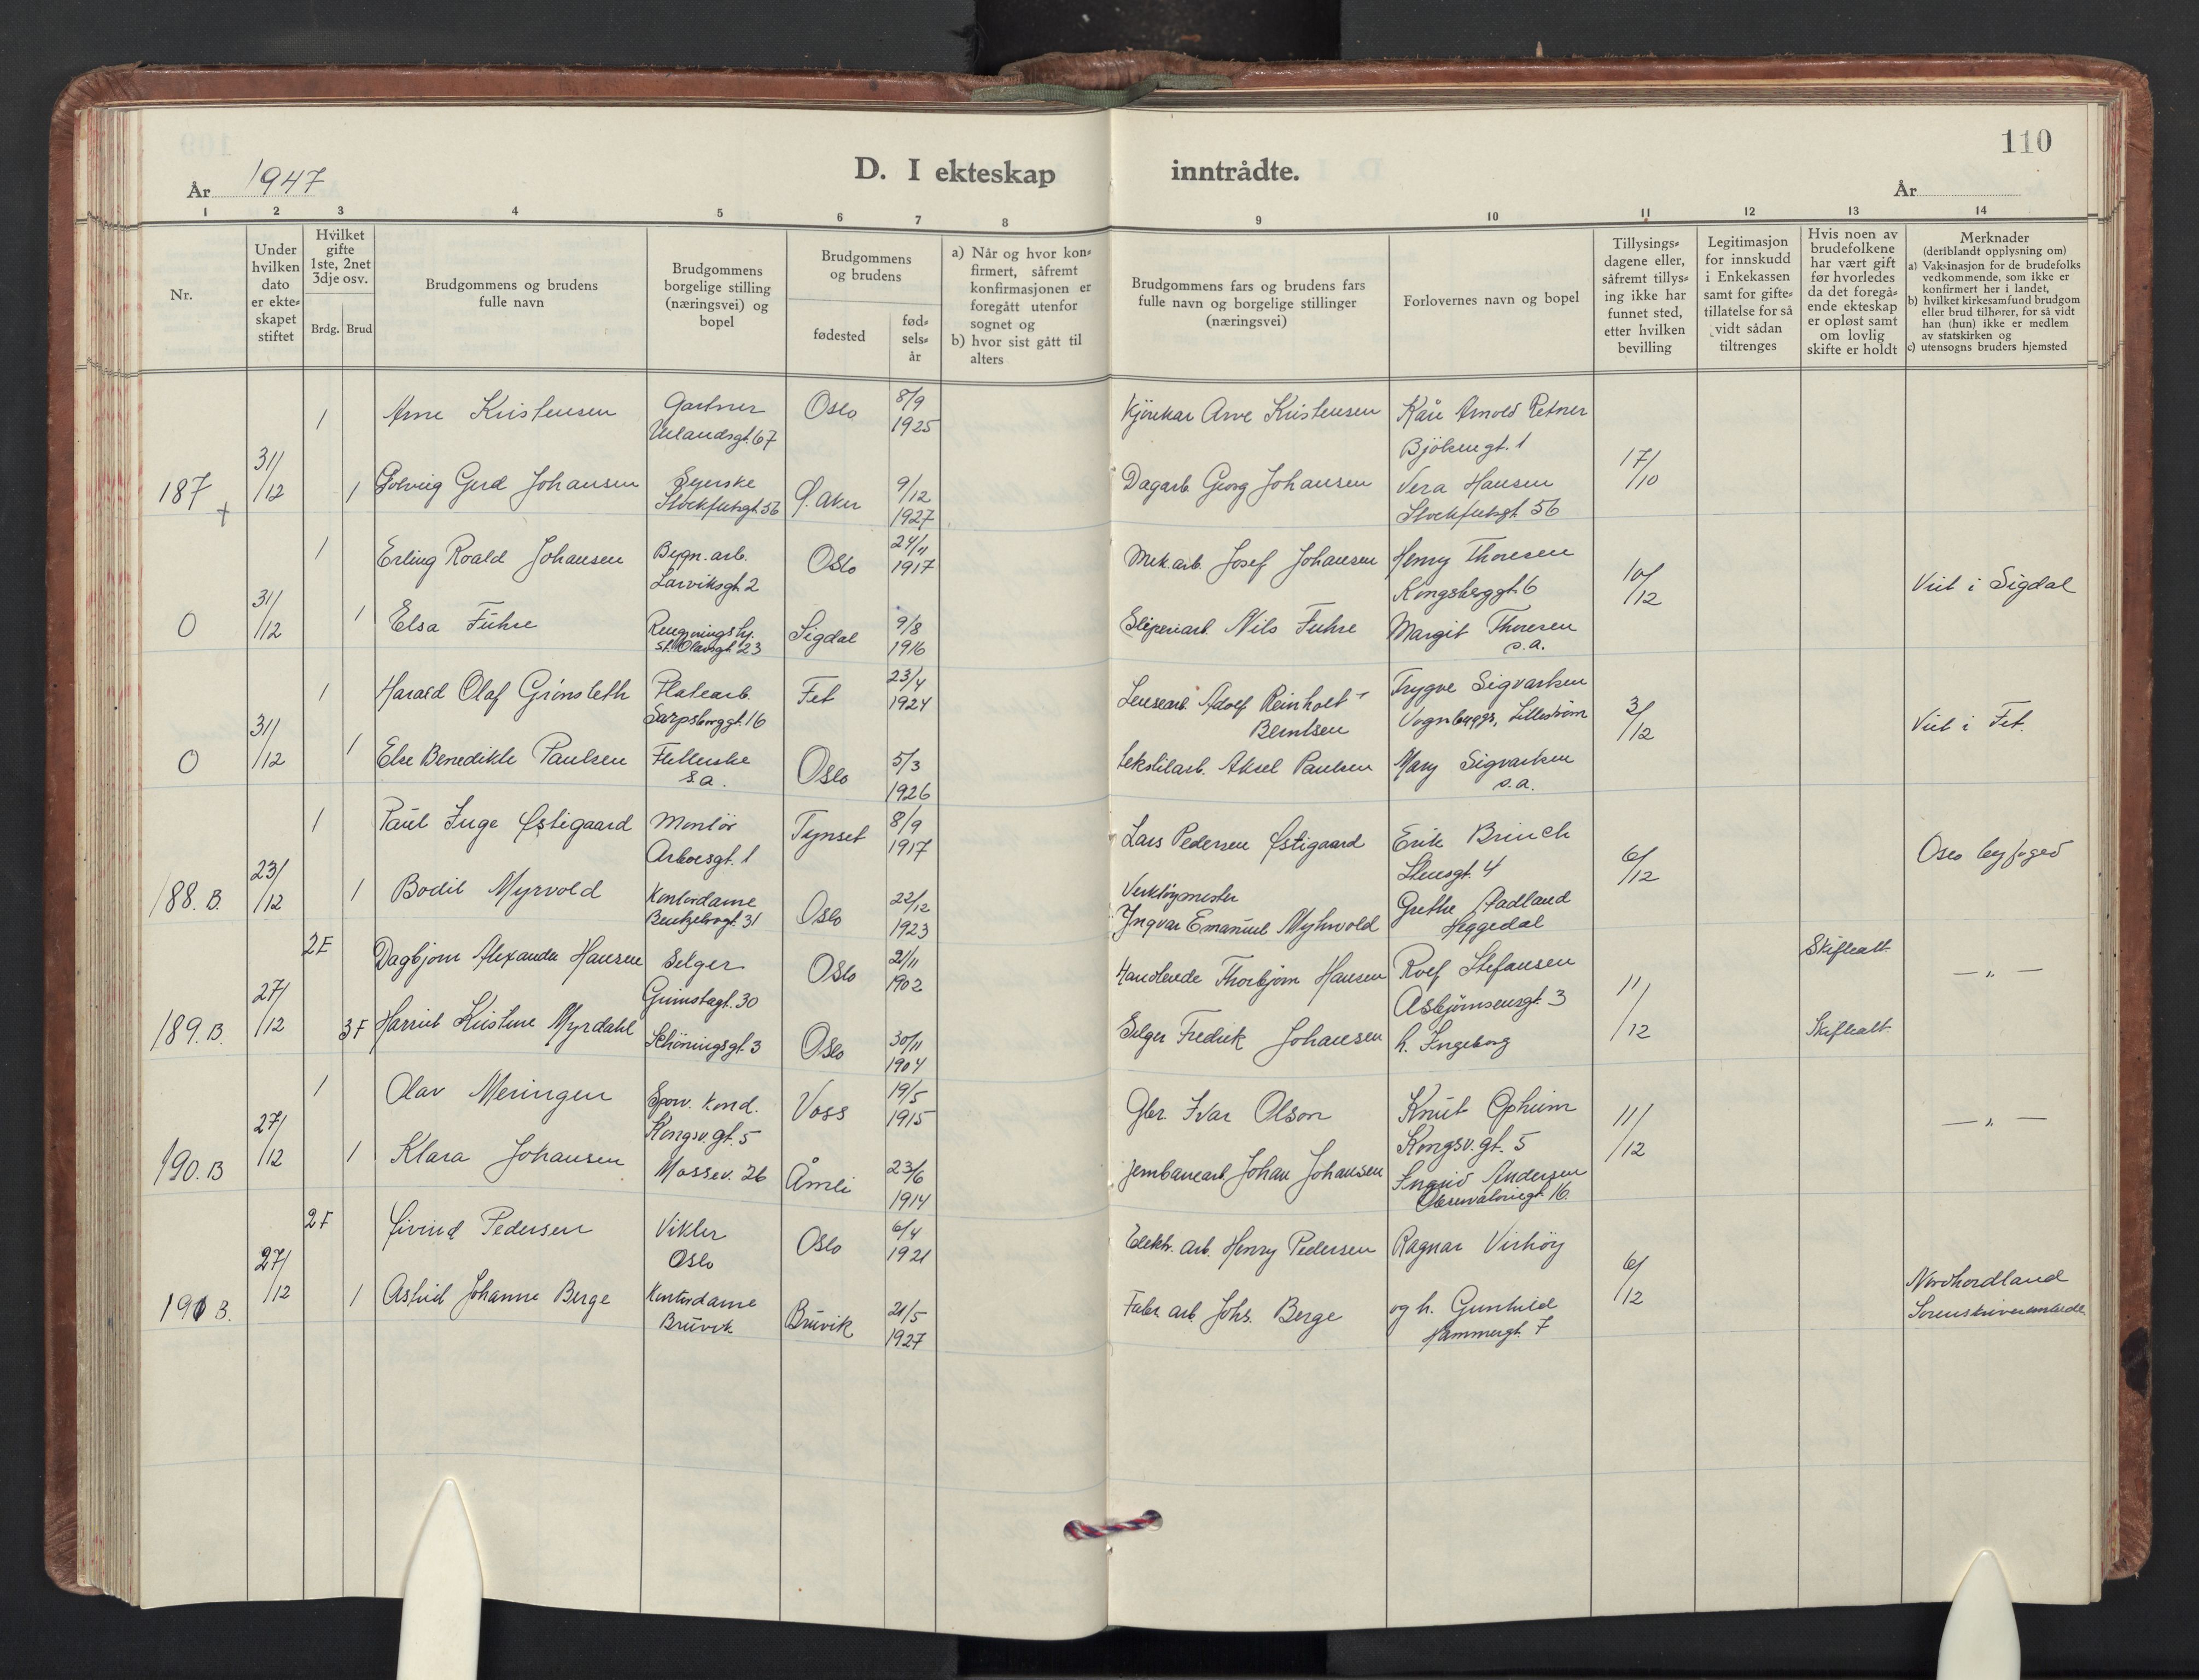 110
D. I ekteskap inntrådte.
År 1947
År
1 2 3 4 5 6 7 8 9 10 11 12 13 14
Nr.
Under hvilken dato er ekte= skapet stiftet
Hvilket gifte 1ste, 2net 3dje osv.
Brdg. Brud
Brudgommens og brudens fulle navn
Brudgommens borgelige stilling (næringsvei) og bopel
Brudgommens og brudens
fødested
fød= sels= år
a) Når og hvor kon= firmert, såfremt konfirmasjonen er foregått utenfor sognet og
b) hvor sist gått til alters
Brudgommens fars og brudens fars fulle navn og borgelige stillinger (næringsvei)
Forlovernes navn og bopel
Tillysings= dagene eller, såfremt tillys= ing ikke har funnet sted, etter hvilken bevilling
Legitimasjon for innskudd i Enkekassen samt for gifte= tillatelse for så vidt sådan tiltrenges
Hvis noen av brudefolkene har vært gift før hvorledes da det foregå= ende ekteskap er opløst samt om lovlig skifte er holdt
Merknader
(deriblandt opplysning om)
a) Vaksinasjon for de brudefolks vedkommende, som ikke er konfirmert her i landet,
b) hvilket kirkesamfund brudgom eller brud tilhører, for så vidt han (hun) ikke er medlem av statskirken og
c) utensogns bruders hjemsted
1 Arne Kristensen Gartner Oslo 8/9 Arve Kristensen Kåre Arnold Petner
Uelandsgt. 67 1925 Bjölsengt. 1
187 + 31/12 1 Solveig Gerd Johansen Syerske Ø. Aker 9/12 Dagarb. Georg Johansen Vera Hansen 17/10
Stockfletsgt. 56 1927 Stockfletsgt. 56
1 Erling Roald Johansen Bygn. arb. Oslo 24/11 Mek. arb. Josef Johansen Henry Thoresen
Larviksgt. 2 1917 Kongsberggt. 6 10/12 Viet i Sigdal
0 31/12 1 Elsa Fuhre Rengjöringshj. Sigdal 9/8 Sliperiarb. Nils Fuhre Margit Thoresen
St. Olavsgt. 23 1916 s.a.
1 Harald Olaf Grönsleth Platearb. Fet 23/4 Lensearb. Adolf Reinholt Trygve Sigvartsen
Sarpsborggt. 16 1924 Berntsen Vognbygger, Lilleström 3/12 Viet i Fet.
0 31/12 1 Else Benedikte Paulsen Fletterske Oslo 5/3 tekstilarb. Aksel Paulsen Mary Sigvartsen
s.a. 1926 s.a.
1 Paul Inge Østigaard Montör Tynset 8/9 Lars Pedersen Østigaard Erik Brinch
Arboesgt. 1 1917 Stensgt. 4 6/12 Oslo byfoged
188. B. 23/12 1 Bodil Myrvold Kontordame Oslo 22/12 Verktöymester Grethe Aadland
Bentzebrogt. 31 1923 Ingvar Emanuel Myhrvold Heggedal
2F Dagbjørn Alexander Hansen Selger Oslo 21/11 Handlende Thorbjörn Hansen Rolf Stefansen Skifteatt — „ —
Grimstagt. 30 1902 Asbjørnsensgt. 3 11/12
189. B. 27/12 3F Harriet Kristine Myrdahl Schöningsgt. 3 Oslo 30/11 Selger Fredrik Johansen h. Ingeborg Skifteatt
1904
1 Olav Meringen Sporv. kond. Voss 19/5 Gbr. Ivar Olson Knut Opheim — „ —
Kongsv. gt. 5 1915 Kongsv. gt. 5 11/12
190. B 27/12 1 Klara Johansen Mossev. 26 Åmli 23/6 Jernbanearb. Johan Johansen Ingrid Andersen
1914 Observatoriegt. 16.
2F Øivind Pedersen Vikler Oslo 6/4 Elektr. arb. Henry Pedersen Ragnar Virhöy
Oslo 1921 6/12 Nordhordland
191 B. 27/12 1 Astrid Johanne Berge Kontordame Bruvik 21/5 Fabr. arb. Johs. Berge og h. Gunhild Sorenskriverembede
Bruvik 1927 Hammergt. 7